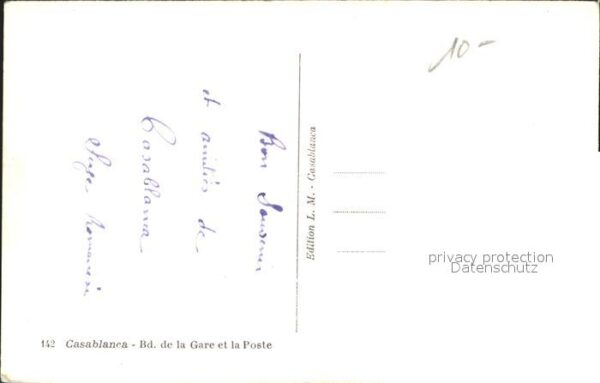 Bon Souvenir
et amitiés de
Casablanca
Serge
10-
Edition L. M. - Casablanca
privacy protection
Datenschutz
142 Casablanca - Bd. de la Gare et la Poste